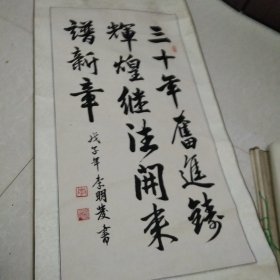 三十年奮進鑄
輝煌继往開来
譜新章
戊子年李明發書